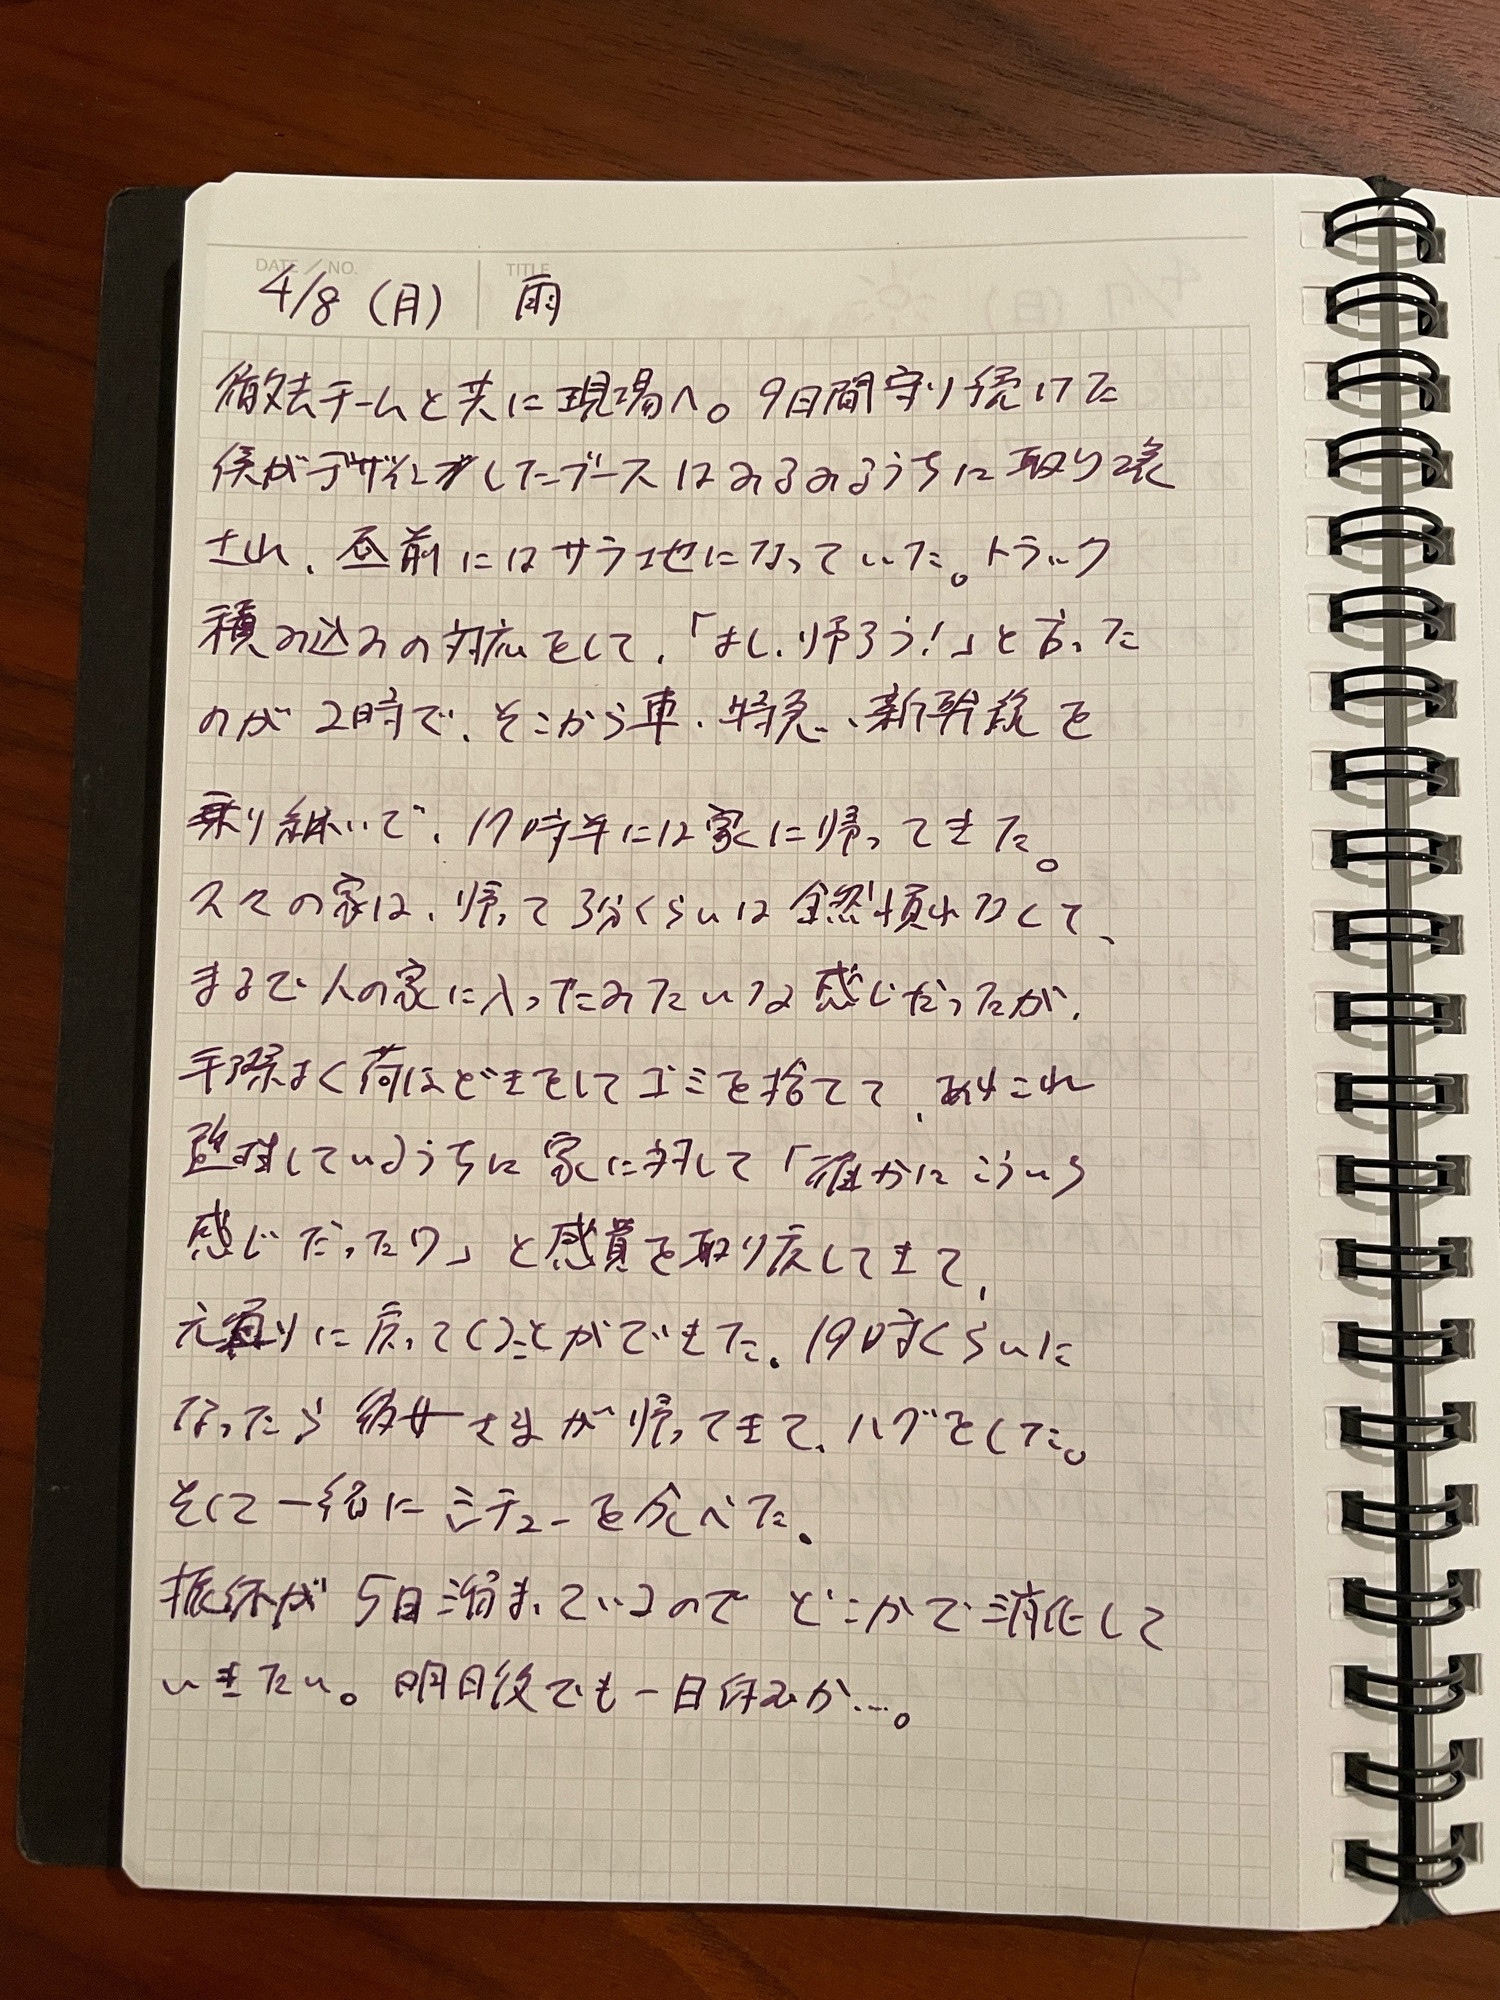 DATE / NO.
TITLE
4/8 (月) 雨
撤去チームと共に現場へ。9日間守り続けた
僕がデザインしたブースはみるみるうちに取り壊
され、昼前にはサラ地になっていた。トラック
積み込みの対応をして、「よし、帰ろう!」と言った
のが2時で、そこから車、特急、新幹線を
乗り継いで、17時半には家に帰ってきた。
久々の家は、帰って3分くらいは全然慣れなくて、
まるで人の家に入ったみたいな感じだったが、
手際よく荷ほどきをしてゴミを捨てて、あれこれ
整理しているうちに家に対して「確かにこういう
感じだったワ」と感覚を取り戻してきて、
元通りに戻ってくることができた。19時くらいに
なったら彼女さまが帰ってきて、ハグをした。
そして一緒にシチューを食べた。
振休が5日溜まっているのでどこかで消化して
いきたい。明日後でも一日休むか…。